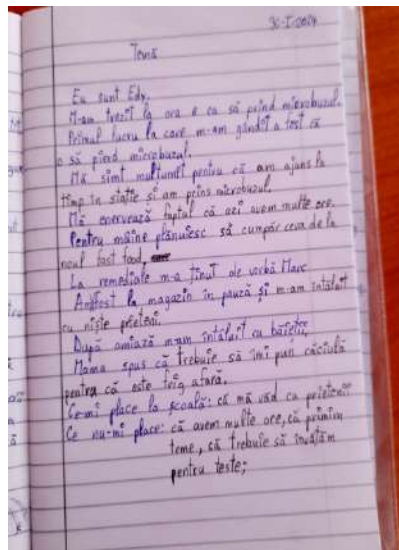 30-I-2024
Temă
Eu sunt Edy.
M-am trezit la ora 6 ca să prind microbuzul.
Primul lucru la care m-am gândit a fost că
o să pierd microbuzul.
Mă simt mulțumit pentru că am ajuns la
timp în stație și am prins microbuzul.
Mă enervează faptul că azi avem multe ore.
Pentru mâine plănuiesc să cumpăr ceva de la
noul fast food,
La remediale m-a ținut de vorbă Marc
Am fost la magazin în pauză și m-am întâlnit
cu niște prieteni.
După amiază m-am întâlnit cu băieții,
Mama spus că trebuie să îmi pun căciulă
pentru că este frig afară.
Ce-mi place la școală: că mă văd cu prietenii
Ce nu-mi place: că avem multe ore, că primim
teme, că trebuie să învățăm
pentru teste;